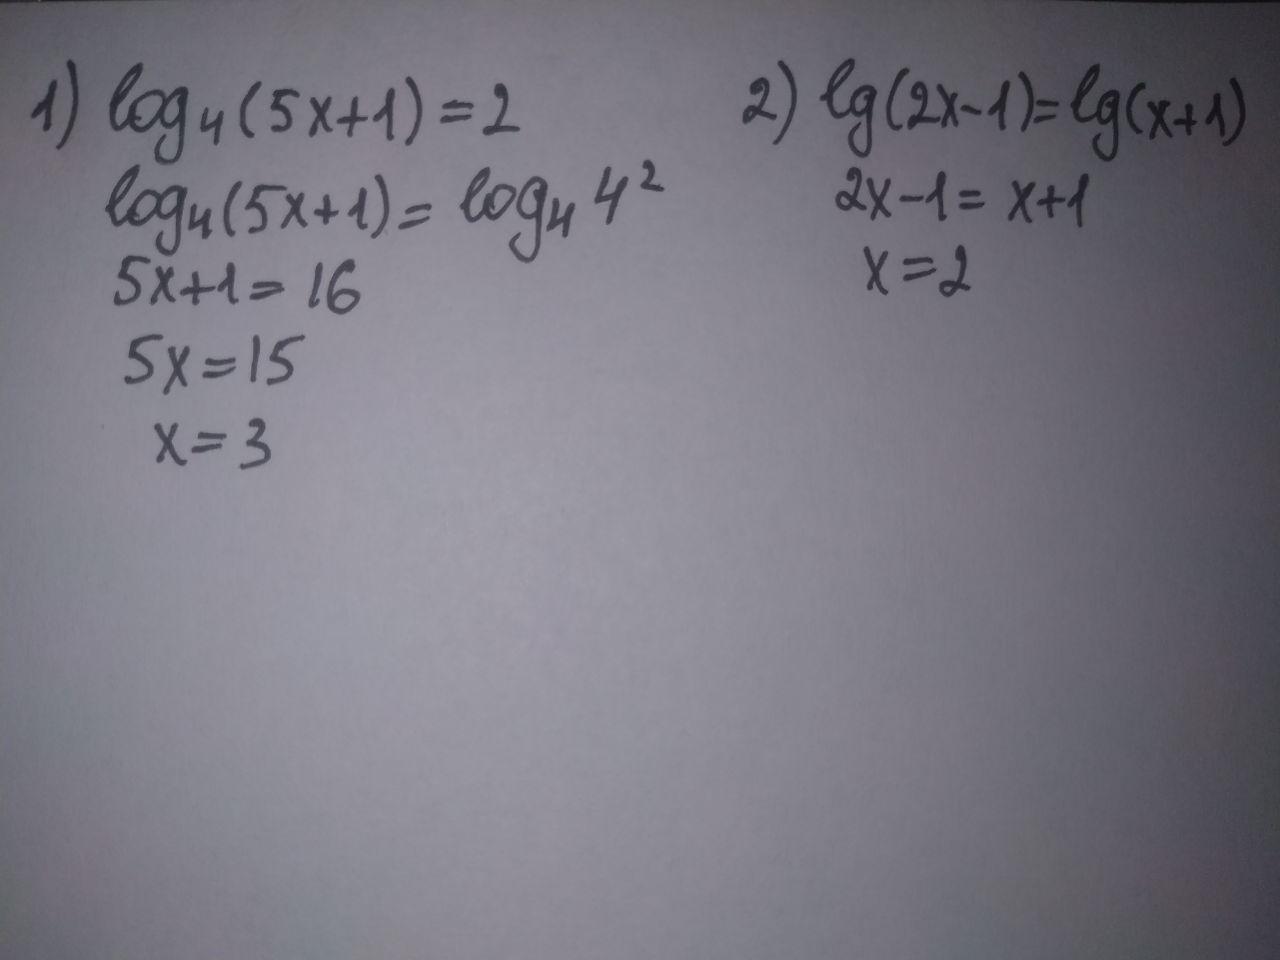 1) log₄(5x+1)=2
log₄(5x+1)=log₄4²
5x+1=16
5x=15
x=3
2) lg(2x-1)=lg(x+1)
2x-1=x+1
x=2